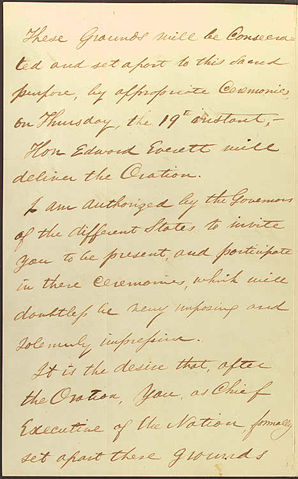 These Grounds will be Consecra
ted and set apart to this Sacred
purpose, by appropriate Ceremonies,
on Thursday, the 19th instant,—
Hon Edward Everett will
deliver the Oration.
I am authorized by the Governors
of the different States to invite
you to be present, and participate
in these Ceremonies, which will
doubtless be very imposing and
solemnly impressive.
It is the desire that, after
the Oration, You, as Chief
Executive of the Nation, formally
set apart these grounds